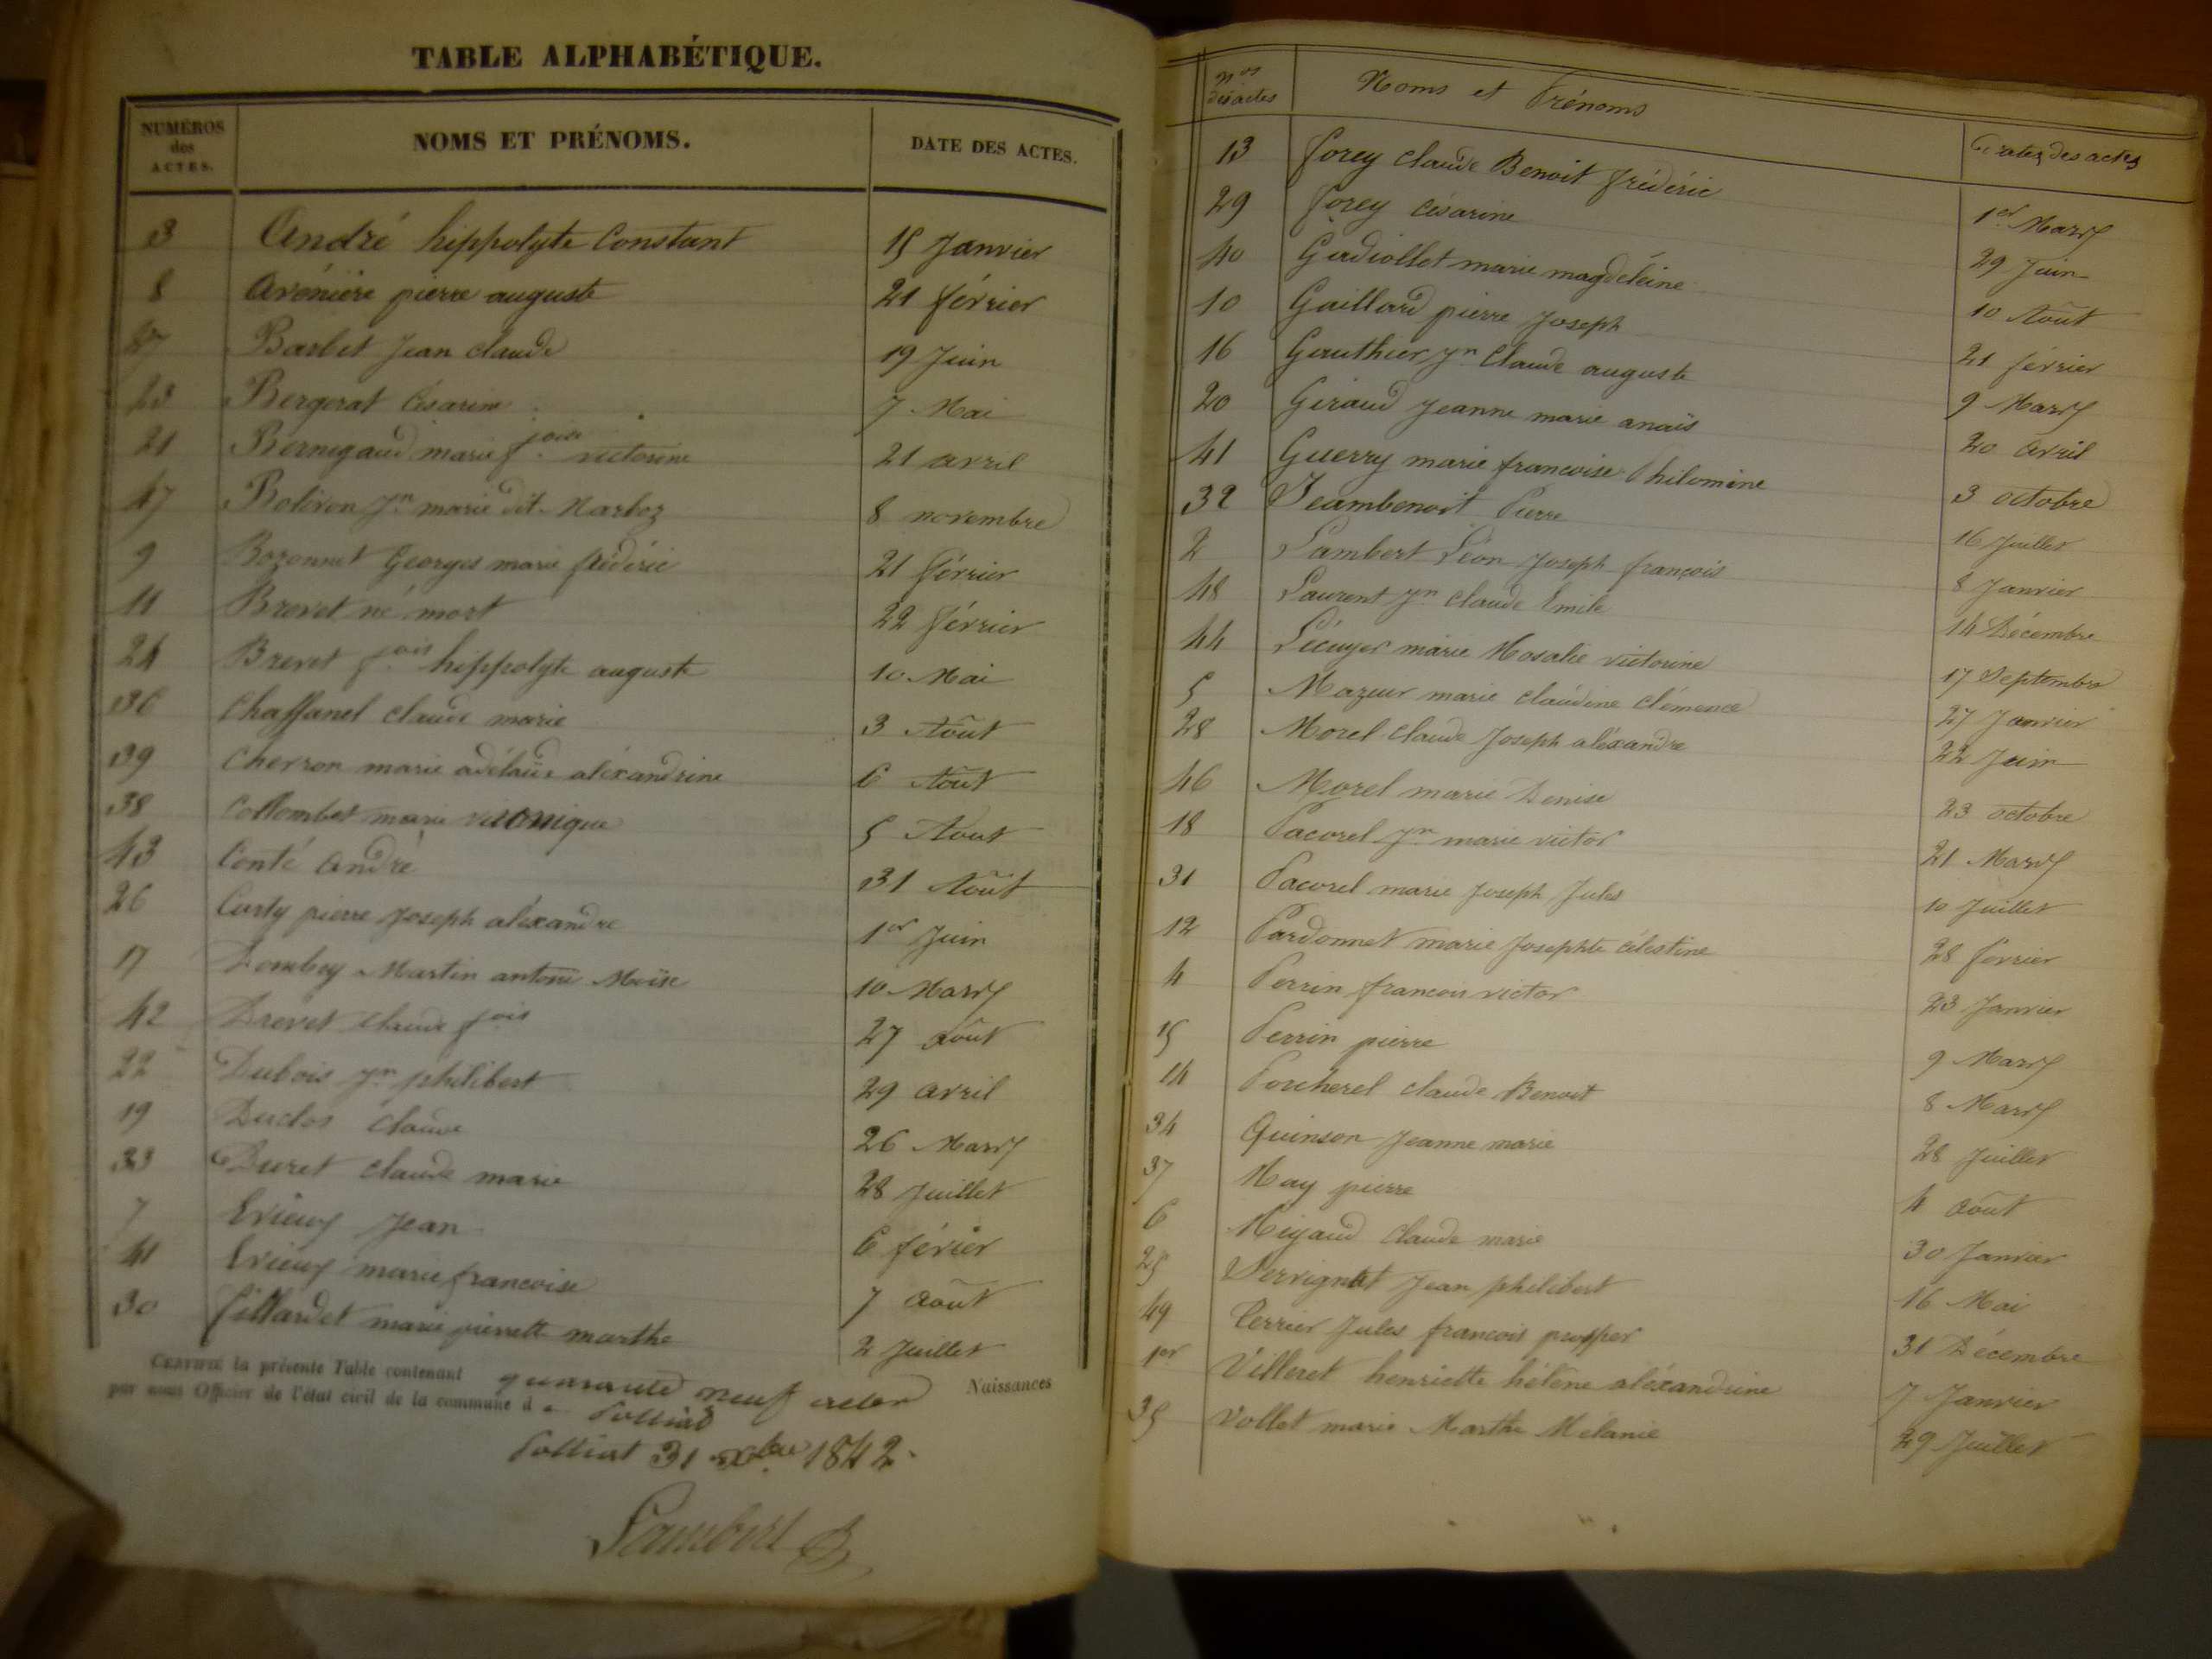 TABLE ALPHABÉTIQUE.
NUMÉROS des ACTES. NOMS ET PRÉNOMS. DATE DES ACTES.
3 André hippolyte Constant 15 Janvier
8 avénière pierre auguste 21 février
27 Barbet Jean claude 19 Juin
23 Bergerat Césarine 7 Mai
21 Bernigaud marie foise victorine 21 avril
47 Bolivon Jn marie dit Marboz 8 novembre
9 Bozonnet Georges marie frédéric 21 février
11 Brevet né mort 22 février
24 Brevet fois hippolyte auguste 10 Mai
36 Chaffanel claude marie 3 Août
39 Cherron marie adélaïde aléxandrine 6 Août
38 Collombet marie véronique 5 Août
43 Conté andré 31 Août
26 Curty pierre Joseph aléxandre 1er Juin
17 Dombey Martin antoine Moïse 10 Mars
42 Drevet claude fois 27 août
22 Dubois Jn philibert 29 avril
19 Duclos Claude 26 Mars
33 Duret claude marie 28 Juillet
7 Evieux Jean 6 févier
41 Evieux marie francoise 7 août
30 fillardet marie pierrette marthe 2 Juillet
CERTIFIÉ la présente Table contenant quarante neuf actes Naissances
par nous Officier de l'état civil de la commune d e Polliat
Polliat 31 Xbre 1842.
Lambert
Nos des actes Noms et Prénoms Dates des actes
13 forey claude Benoit frédéric 1er Mars
29 forey Césarine 29 Juin
40 Gadiollet marie magdeleine 10 Août
10 Gaillard pierre Joseph 21 février
16 Gauthier Jn Claude auguste 9 Mars
20 Giraud Jeanne marie anaïs 20 avril
41 Guerry marie francoise Philomine 3 octobre
32 Jeambenoit Pierre 16 Juillet
2 Lambert Léon Joseph françois 8 Janvier
48 Laurent Jn claude Emile 14 Décembre
44 Lécuyer marie Rosalie victorine 17 Septembre
5 Mazuir marie claudine clémence 27 Janvier
28 Morel claude Joseph aléxandre 22 Juin
46 Morel marie Denise 23 octobre
18 Pacorel Jn marie victor 21 Mars
31 Pacorel marie Joseph Jules 10 Juillet
12 Pardonnet marie Josephte célestine 28 février
4 Perrin francois victor 23 Janvier
15 Perrin pierre 9 Mars
14 Porcherel claude Benoit 8 Mars
34 Quinson Jeanne marie 28 Juillet
37 Ray pierre 4 août
6 Rigaud Claude marie 30 Janvier
25 Servignat Jean philibert 16 Mai
49 Terrier Jules francois prosper 31 Décembre
1er Villeret henriette hélène aléxandrine 7 Janvier
35 Vollet marie Marthe Mélanie 29 Juillet